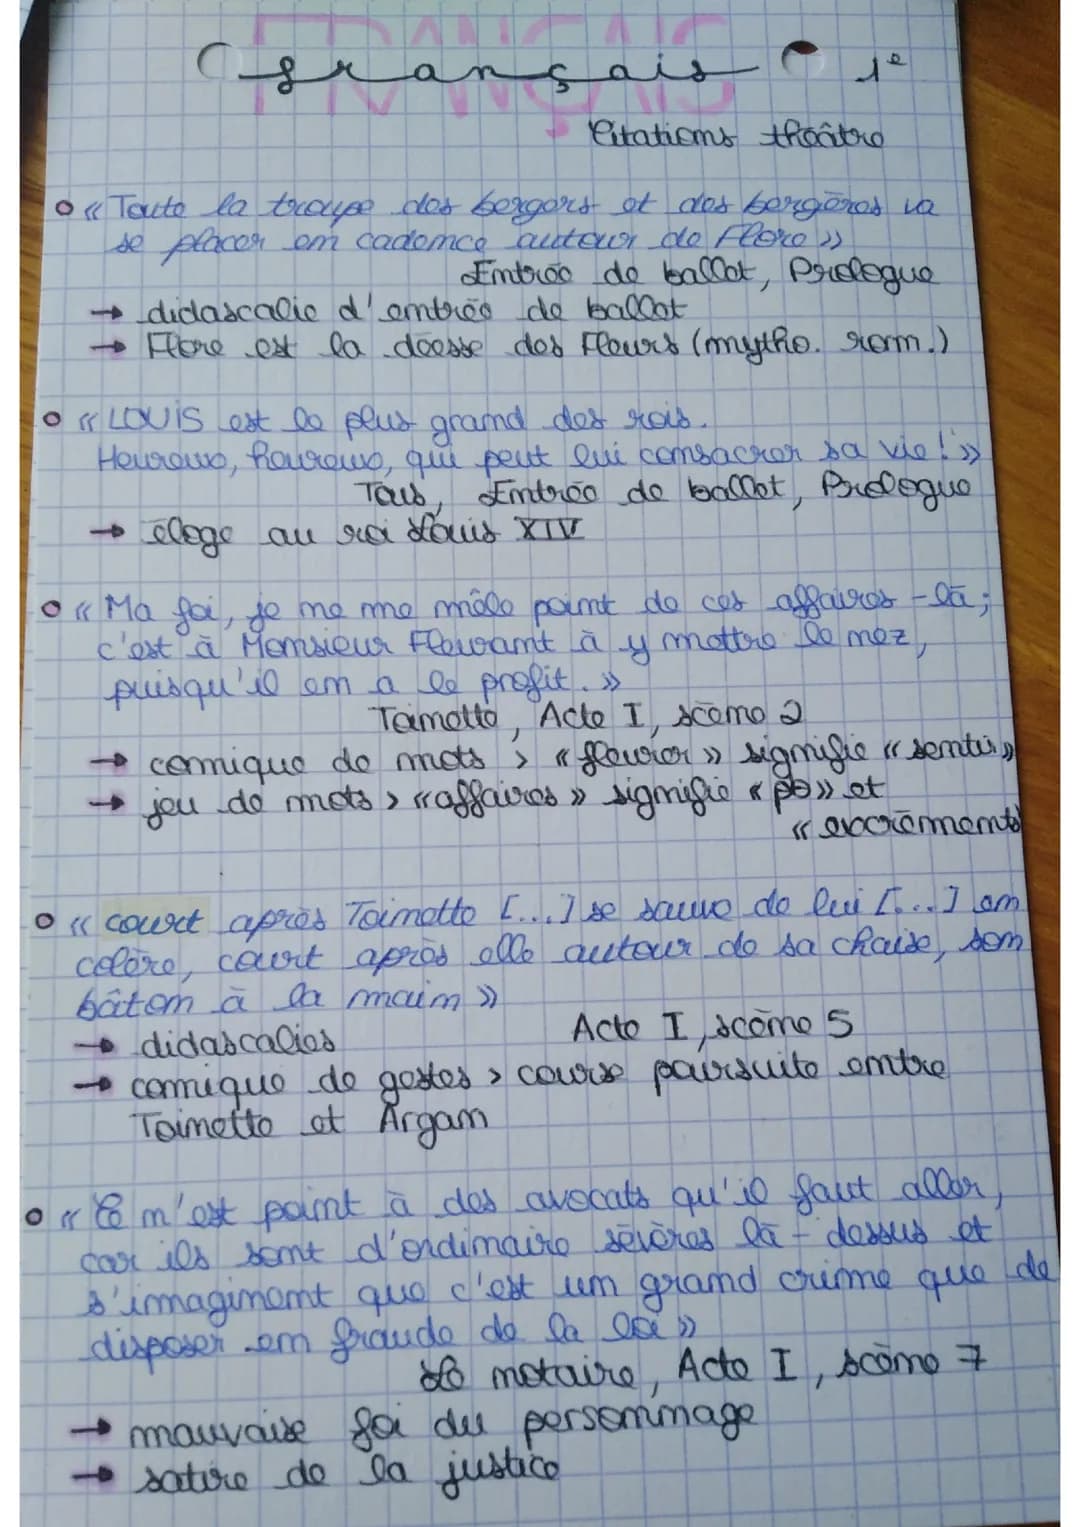 FRANÇAIS
français 1e
Citations théâtre
« Toute la troupe des bergers et des bergères va
se placer en cadence autour de Flore »
Entrée de ballet, Prologue
→ didascalie d'entrée de ballet
→ Flore est la déesse des fleurs (mytho. rom.)
« LOUIS est le plus grand des rois.
Heureux, heureux, qui peut lui consacrer sa vie ! »
Tous, Entrée de ballet, Prologue
→ éloge au roi Louis XIV
« Ma foi, je ne me mêle point de ces affaires-là ;
c'est à Monsieur Fleurant à y mettre le nez,
puisqu'il en a le profit. »
Toinette, Acte I, scène 2
→ comique de mots > « fleurer » signifie « sentir »
→ jeu de mots > « affaires » signifie « pb » et
« excréments
« court après Toinette [...] se sauve de lui [...] en
colère, court après elle autour de sa chaise, son
bâton à la main »
Acte I, scène 5
→ didascalies
→ comique de gestes > course poursuite entre
Toinette et Argan
« Ce n'est point à des avocats qu'il faut aller,
car ils sont d'ordinaire sévères là-dessus et
s'imaginent que c'est un grand crime que de
disposer en fraude de la loi »
Le notaire, Acte I, scène 7
→ mauvaise foi du personnage
→ satire de la justice